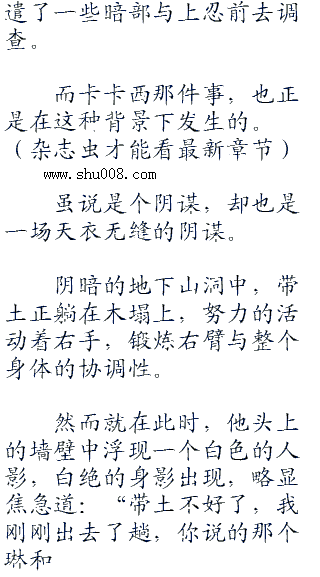 遣了一些暗部与上忍前去调
查。
而卡卡西那件事，也正
是在这种背景下发生的。
（杂志虫才能看最新章节）
www.shu008.com
虽说是个阴谋，却也是
一场天衣无缝的阴谋。
阴暗的地下山洞中，带
土正躺在木塌上，努力的活
动着右手，锻炼右臂与整个
身体的协调性。
然而就在此时，他头上
的墙壁中浮现一个白色的人
影，白绝的身影出现，略显
焦急道：“带土不好了，我
刚刚出去了趟，你说的那个
琳和